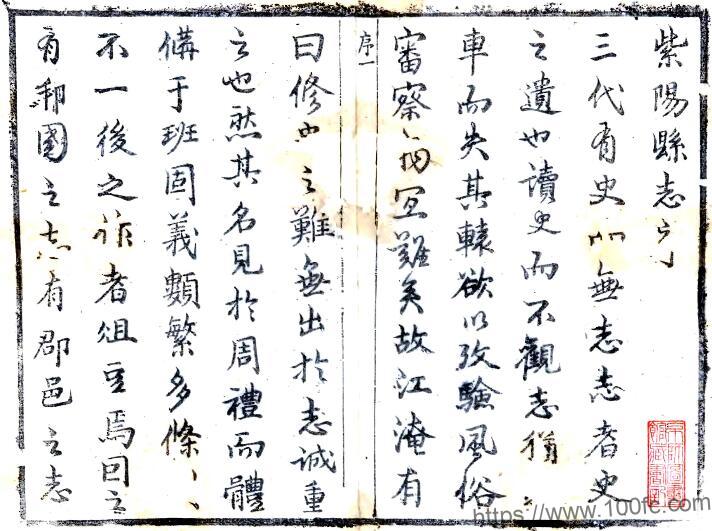 紫陽縣志序
三代有史而無志志者史
之遺也讀史而不觀志猶
車而失其轅欲以攷驗風俗
審察物宜難矣故江淹有
序一
曰修史之難無出於志誠重
之也然其名見於周禮而體
備于班固義類繁多條〻
不一後之作者俎豆焉因之
有邦國之志有郡邑之志
京師圖書館藏書記
https://www.100fc.com